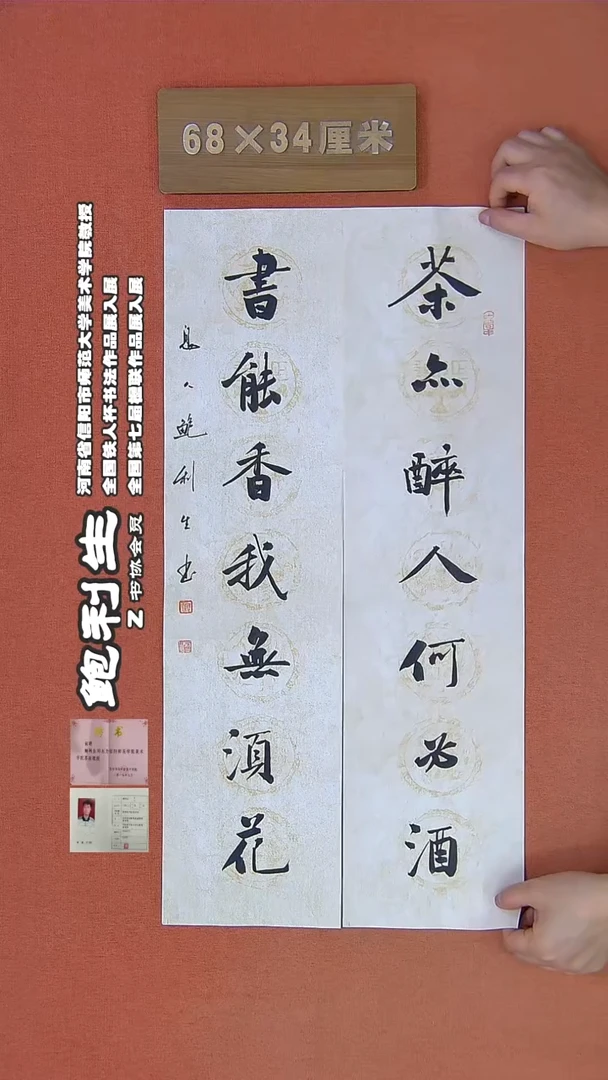 68×34厘米
茶亦醉人何必酒
書能香我無湏花
鲍利生书
鲍利生
Z 书协会员
河南省信阳市师范大学美术学院教授
全国铁人杯书法作品展入展
全国第七届楹联作品展入展